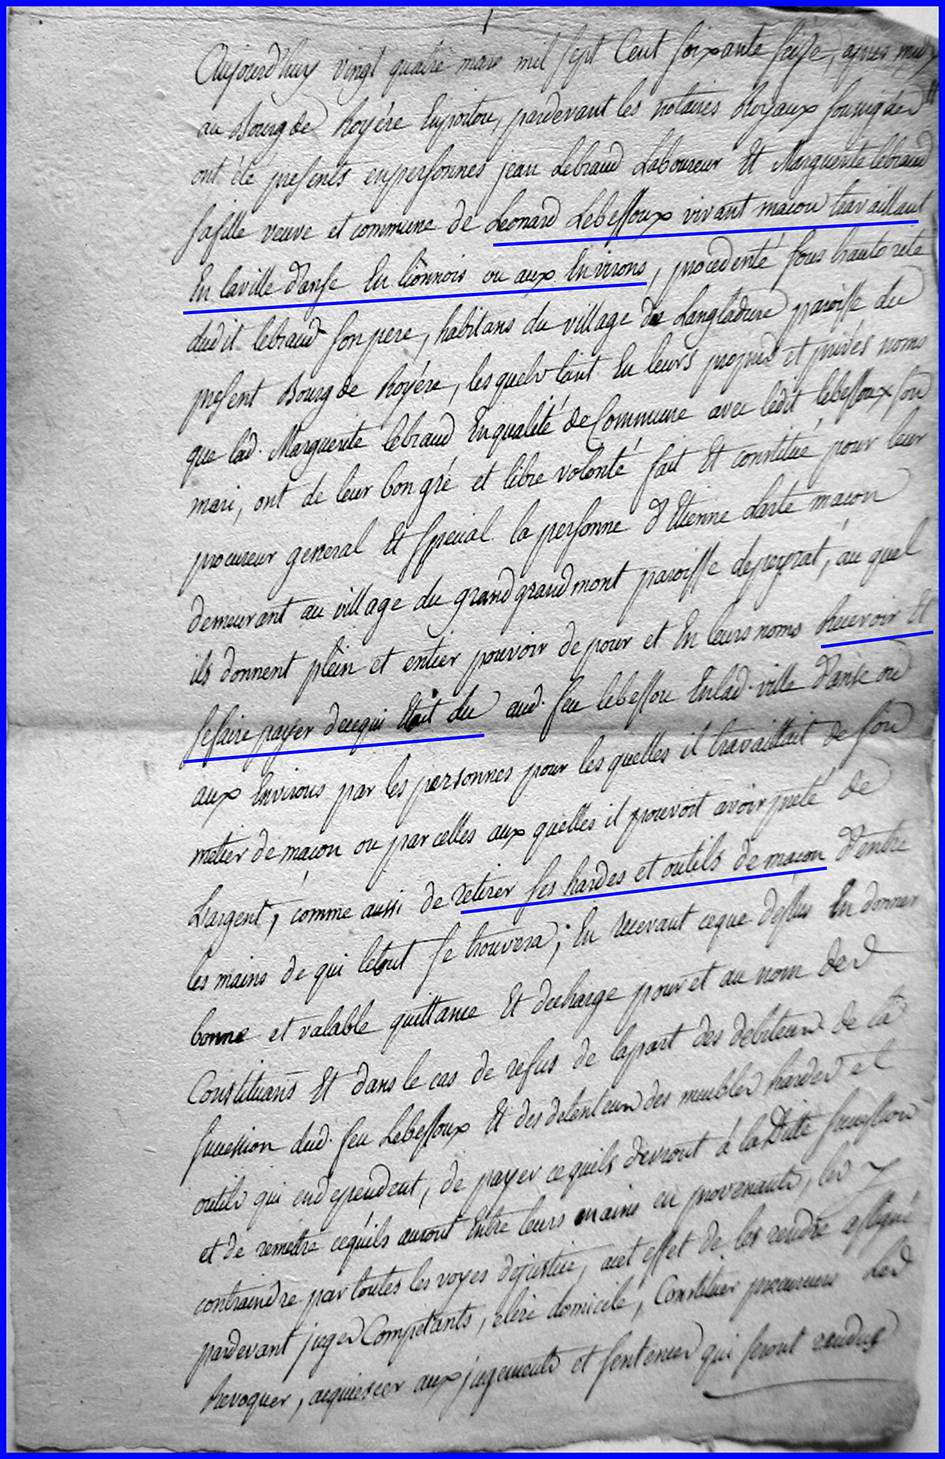 Aujourd'huy vingt quatre mars mil sept Cent soixante seize, apres midy
au Bourg de Royére En poitou, pardevant les notaires Royaux soussignés
ont été presents en personnes jean Lebraud Laboureur Et Marguerite lebraud
sa fille veuve et commune de Leonard Lebessoux vivant macon travaillant
En la ville d'anse En lionnois ou aux Environs, procedente sous l'autorité
dudit lebraud son pere, habitans du village de Langladure paroisse du
present Bourg de Royére, lesquels tant En leurs propres et privés noms
que lad. Marguerite lebraud En qualité de Commune avec ledit lebessoux son
mari, ont de leur bon gré et libre volonté fait Et constitué pour leur
procureur general Et special la personne d'Etienne Larte macon
demeurant au village du grand grandmont paroisse de peyrat, au quel
ils donnent plein et entier pouvoir de pour et En leurs noms Recevoir Et
se faire payer de ce qui Etait du aud. feu lebessou En lad. ville d'anse ou
aux Environs par les personnes pour les quelles il travaillait de son
métier de maçon ou par celles aux quelles il pouvoit avoir preté de
L'argent, comme aussi de retirer ses hardes et outils de macon d'entre
les mains de qui le tout se trouvera; En recevant ce que dessus En donner
bonne et valable quittance Et decharge pour et au nom des
Constituans Et dans le cas de refus de la part des debiteurs de la
succession dud. feu Lebessoux Et des detenteurs des meubles hardes et
outils qui en dependent, de payer ce quils devront à la Ditte succession
et de remettre ce quils auront Entre leurs mains en provenants, les y
contraindre par toutes les voyes de justice, a cet effet de les rendre
pardevant juges Compétants, elire domicile, Constituer procureurs Les
Revoquer, acquiescer aux jugements et sentences qui seront rendus